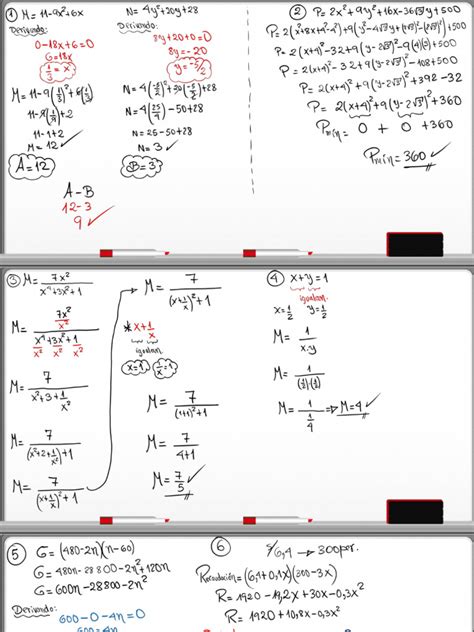 ① M = 11-9x²+6x
Derivando:
0-18x+6=0
6=18x
1/3 = x
M = 11-9(1/3)²+6(1/3)
11-9(1/9)+2
11-1+2
M = 12 ✓
A=12
N = 4y²+20y+28
Derivando:
8y+20+0=0
8y=-20
y=-5/2
N = 4(-5/2)²+20(-5/2)+28
N = 4(25/4)-50+28
N = 25-50+28
N = 3 ✓
B=3
A-B
12-3
9 ✓
② P = 2x²+9y²+16x-36√3y+500
P = 2(x+4)²-32+9(y-2√3)²-108+500
P = 2(x+4)²+9(y-2√3)²+392-32
P = 2(x+4)²+9(y-2√3)²+360
Pmín = 0 + 0 +360
Pmín = 360 ✓
③ M = 7x²/(x⁴+3x²+1)
M = (7x²/x²)/(x⁴/x²+3x²/x²+1/x²)
M = 7/(x²+3+1/x²)
M = 7/((x²+2+1/x²)+1)
M = 7/((x+1/x)²+1)
M = 7/((x+1/x)²+1)
* x+1/x
igualan
x=1 1/x=1
M = 7/((1+1)²+1)
M = 7/(4+1)
M = 7/5 ✓
④ x+y=1
igualan.
x=1/2 y=1/2
M = 1/(x.y)
M = 1/((1/2)(1/2))
M = 1/(1/4) ⇒ M=4 ✓
⑤ G = (480-2n)(n-60)
G = 480n-28800-2n²+120n
G = 600n-28800-2n²
Derivando:
600-0-4n=0
⑥ S/6,4 → 300per.
Recaudación = (6,4+0,1x)(300-3x)
R = 1920-19,2x+30x-0,3x²
R = 1920+10,8x-0,3x²